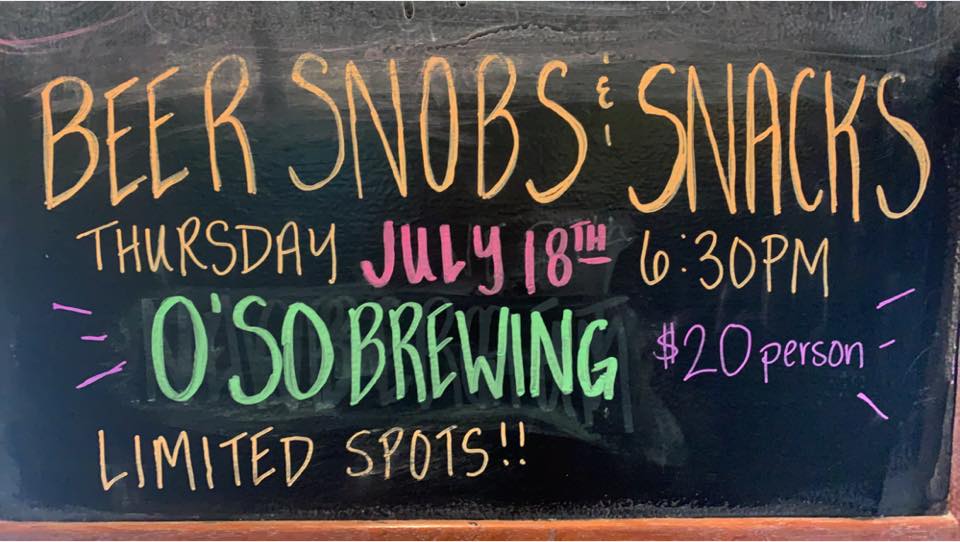 BEER SNOBS & SNACKS
THURSDAY JULY 18TH 6:30PM
O'SO BREWING $20 person
LIMITED SPOTS!!